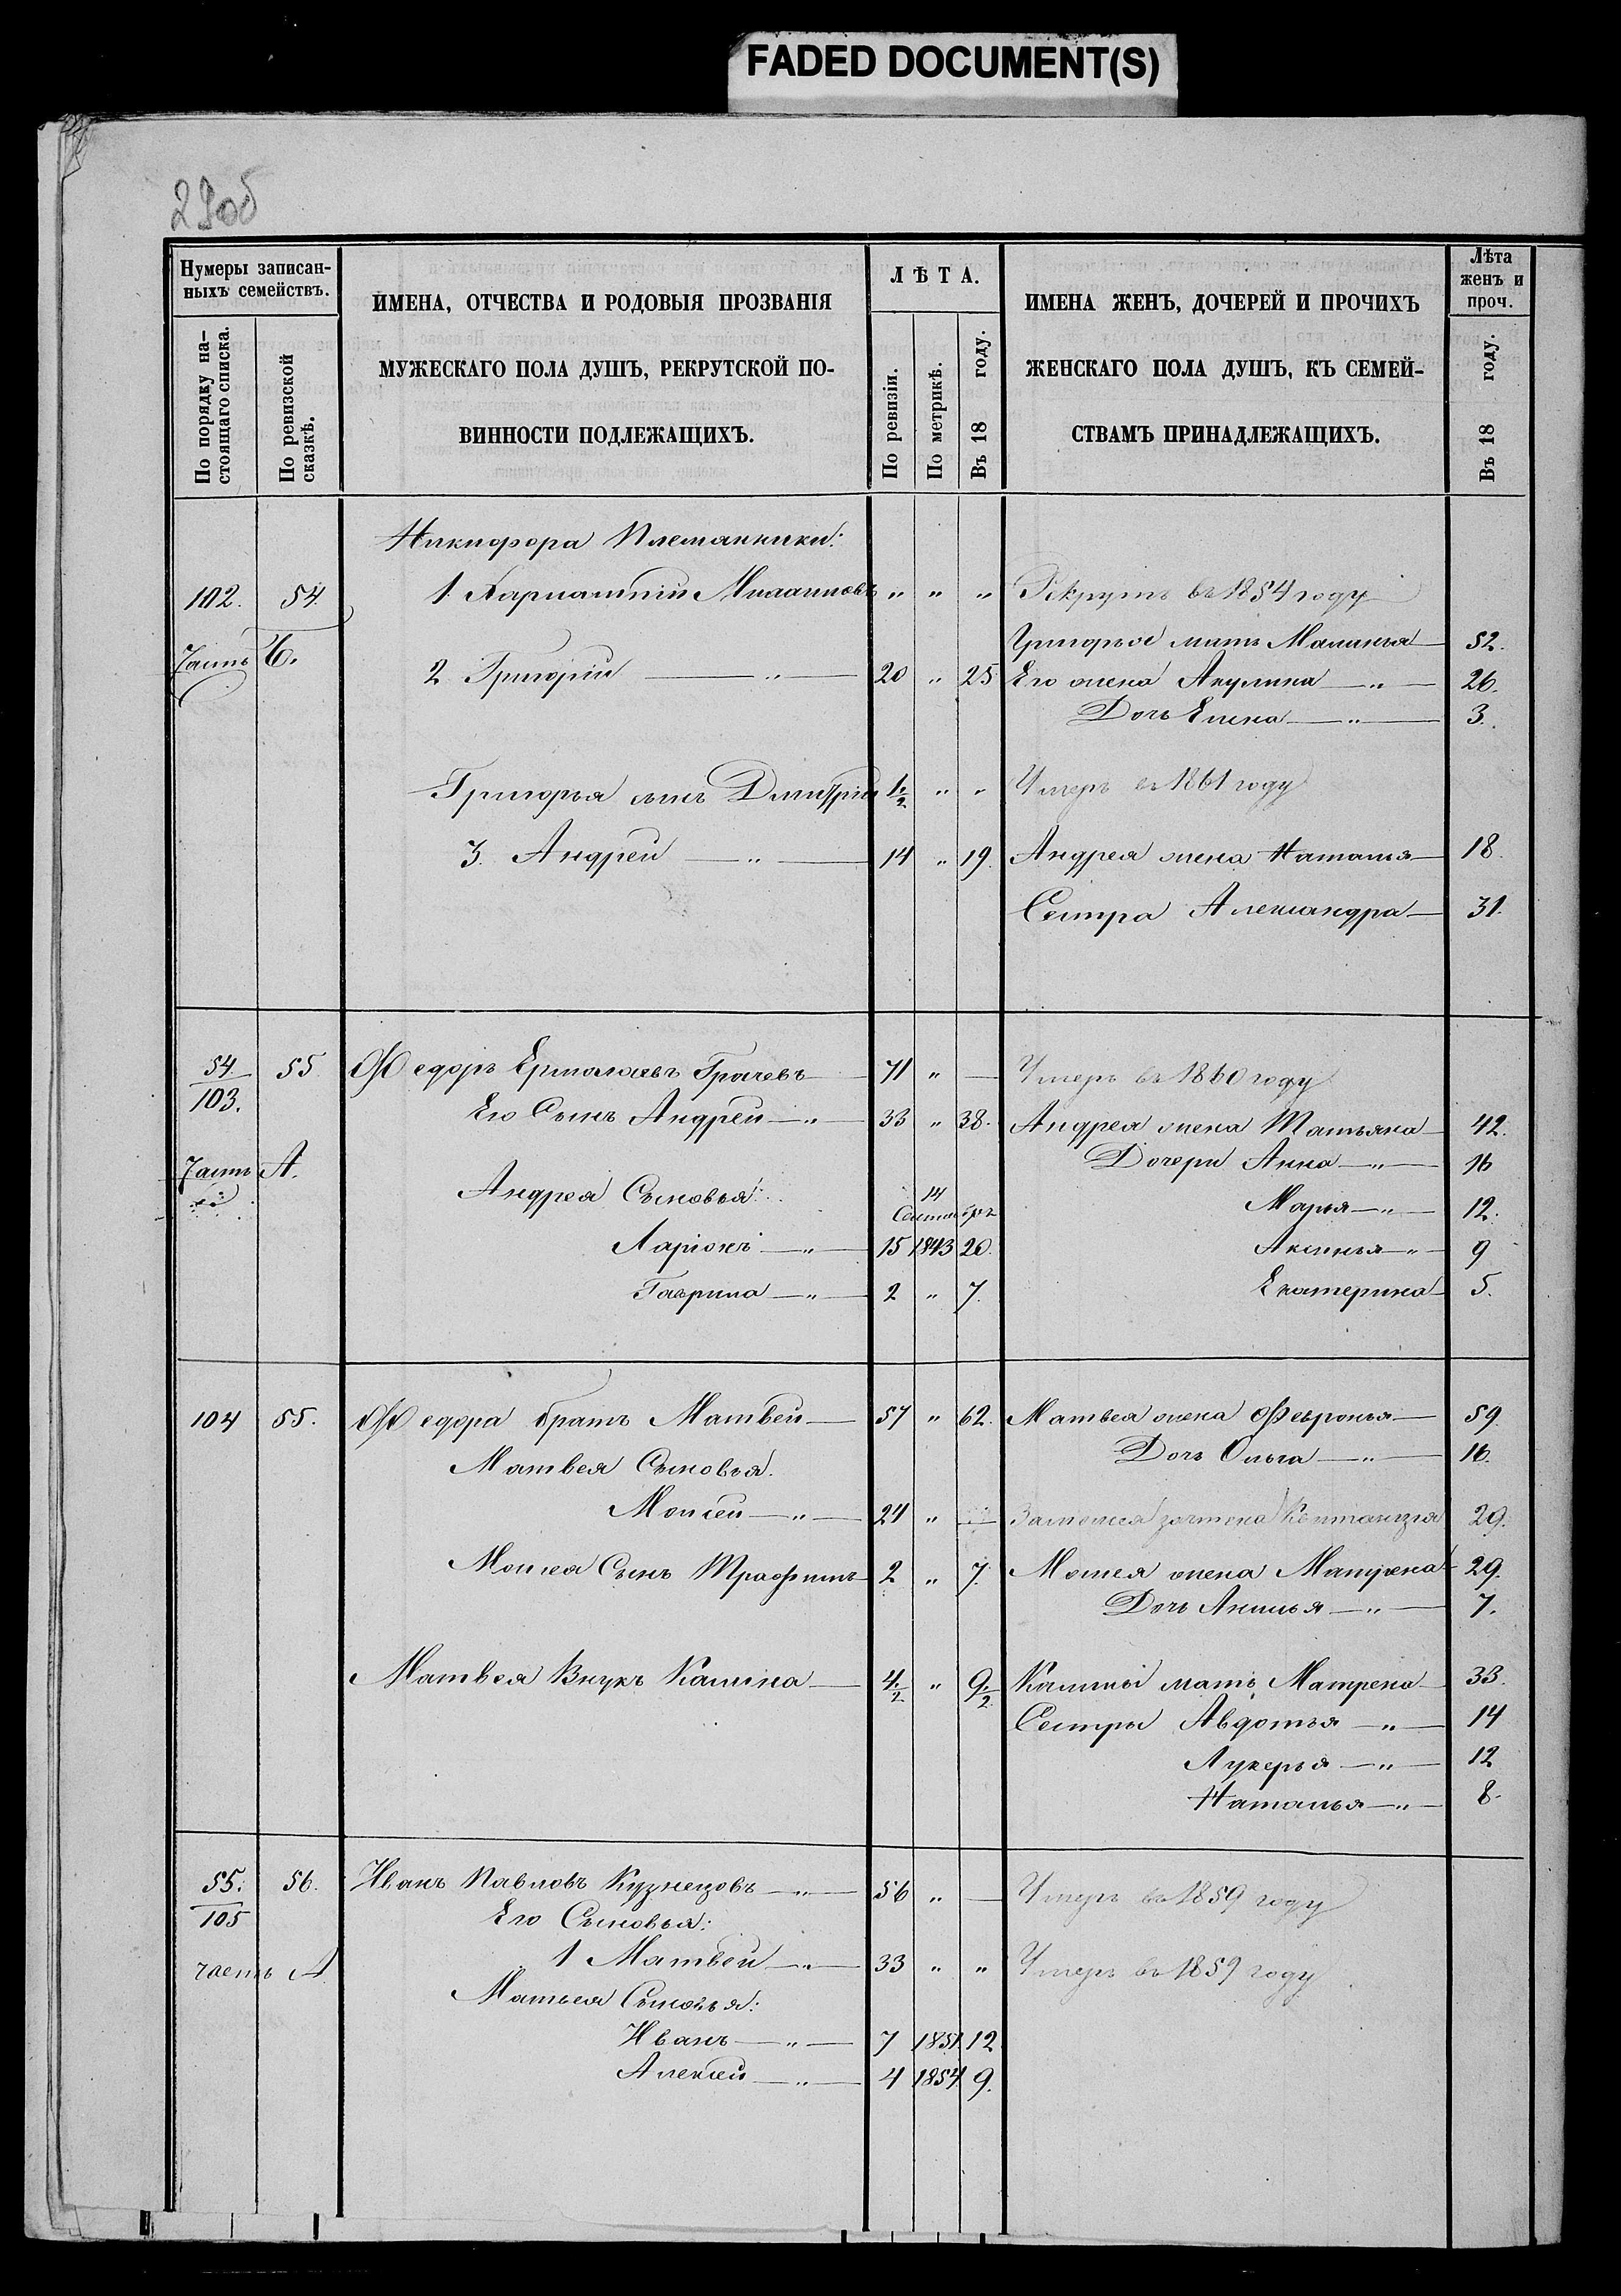 FADED DOCUMENT(S)
29об
Нумеры записан-
ныхъ семействъ.
По порядку на-
стоящаго списка.
По ревизской
сказкѣ.
ИМЕНА, ОТЧЕСТВА И РОДОВЫЯ ПРОЗВАНІЯ
МУЖЕСКАГО ПОЛА ДУШЪ, РЕКРУТСКОЙ ПО-
ВИННОСТИ ПОДЛЕЖАЩИХЪ.
ЛѢТА.
По ревизіи.
По метрикѣ.
Въ 18 году.
ИМЕНА ЖЕНЪ, ДОЧЕРЕЙ И ПРОЧИХЪ
ЖЕНСКАГО ПОЛА ДУШЪ, КЪ СЕМЕЙ-
СТВАМЪ ПРИНАДЛЕЖАЩИХЪ.
Лѣта
женъ и
проч.
Въ 18 году.
Никифора Племянники:
102. 54. 1. " " " Рекрутъ въ 1854 году
Григорья мать Маланья 52.
Часть Б. 2 Григорій " 20 " 25 Его жена Акулина " 26.
Дочь Елена " 3.
Григорья сынъ Дмитрій 1/2 " " Умеръ въ 1861 году
3. Андрей " 14 " 19. Андрея жена Наталья 18.
Сестра Александра 31.
54/103. 55 Федоръ Ермолаевъ Грачевъ 71 " — Умеръ въ 1860 году
Его Сынъ Андрей " 33 " 38. Андрея жена Татьяна 42.
Часть А. Дочери Анна " 16
Андрея Сыновья: 14 Сентября Марья " 12.
Ларіонъ " 15 1843 20. Аксинья " 9
Гаврила " 2 " 7. Екатерина 5.
104 55. Федора братъ Матвей 57 " 62. Матвея жена Февронья 59.
Матвея Сыновья. Дочь Ольга " 16.
Моисей " 24 " — зачтена Квитанція 29.
Моисея Сынъ Трофимъ 2 " 7. Моисея жена Матрена 29.
Дочь Аксинья " 7.
Матвея Внукъ Калина 4 1/2 " 9 1/2 Калины мать Матрена 33.
Сестры Авдотья " 14
Лукерья " 12
Наталья " 8.
55./105 56. Иванъ Павловъ Кузнецовъ " 56 " — Умеръ въ 1859 году
Его Сыновья:
часть А. 1 Матвей " 33 " " Умеръ въ 1859 году
Матвея Сыновья:
Иванъ " 7 1851 12
Алексей " 4 1854 9.